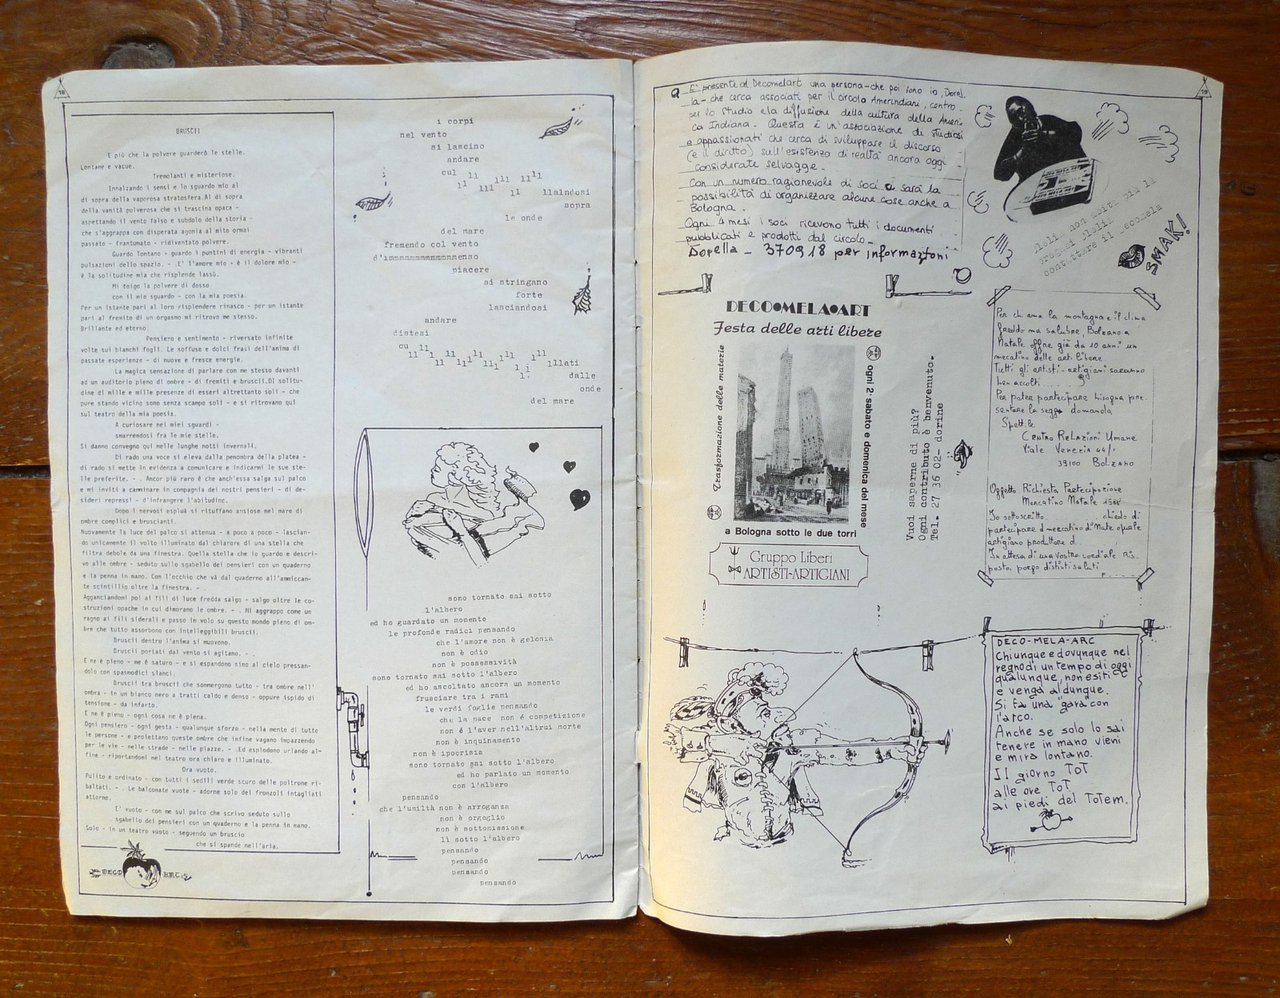 18
BRUSCII
E più che la polvere guarderò le stelle.
Lontane e vacue.
Tremolanti e misteriose.
Innalzando i sensi e lo sguardo mio al
di sopra della vaporosa stratosfera. Al di sopra
della vanità polverosa che si trascina opaca -
aspettando il vento falso e subdolo della storia -
che s'aggrappa con disperata agonia al mito ormai
passato - frantumato - ridiventato polvere.
Guardo lontano - guardo i puntini di energia - vibranti
pulsazioni dello spazio. - E' l'amore mio - è il dolore mio -
è la solitudine mia che risplende lassù.
Mi tolgo la polvere di dosso
con il mio sguardo - con la mia poesia.
Per un istante pari al loro risplendere rinasco - per un istante
pari al fremito di un orgasmo mi ritrovo me stesso.
Brillante ed eterno.
Pensiero e sentimento - riversato infinite
volte sui bianchi fogli. Le soffuse e dolci frasi dell'anima di
passate esperienze - di nuove e fresce energie.
La magica sensazione di parlare con me stesso davanti
ad un auditorio pieno di ombre - di fremiti e bruscii. Di solitu-
dine di mille e mille presenze di esseri altrettanto soli - che
pure stando vicino sono senza scampo soli - e si ritrovano qui
sul teatro della mia poesia.
A curiosare nei miei sguardi -
smarrendosi fra le mie stelle.
Si danno convegno qui nelle lunghe notti invernali.
Di rado una voce si eleva dalla penombra della platea -
di rado si mette in evidenza a comunicare e indicarmi le sue ste-
lle preferite. - . Ancor più raro è che anch'essa salga sul palco
e mi inviti a camminare in compagnia dei nostri pensieri - di de-
sideri repressi - d'infrangere l'abitudine.
Dopo i nervosi esplua si rituffano ansiose nel mare di
ombre complici e bruscianti.
Nuovamente la luce del palco si attenua - a poco a poco - lascian-
do unicamente il volto illuminato dal chiarore di una stella che
filtra debole da una finestra. Quella stella che io guardo e descri-
vo alle ombre - seduto sullo sgabello dei pensieri con un quaderno
e la penna in mano. Con l'occhio che và dal quaderno all'ammiccan-
te scintillio oltre la finestra. - .
Agganciandomi poi ai fili di luce fredda salgo - salgo oltre le co-
struzioni opache in cui dimorano le ombre. - . Mi aggrappo come un
ragno ai fili siderali e passo in volo su questo mondo pieno di om-
bre che tutto assorbono con intelleggibili bruscii.
Bruscii dentro l'anima si muovono.
Bruscii portati dal vento si agitano. - .
E ne è pieno - me è saturo - e si espandono sino al cielo pressan-
dolo con spasmodici slanci.
Bruscii tra bruscii che sommergono tutto - tra ombre nell'
ombra - in un bianco nero a tratti caldo e denso - oppure ispido di
tensione - da infarto.
E ne è pieno - ogni cosa ne è piena.
Ogni pensiero - ogni gesta - qualunque sforzo - nella mente di tutte
le persone - e proiettano queste ombre che infine vagano impazzendo
per le vie - nelle strade - nelle piazze. - . Ed esplodono urlando al-
fine - riportandosi nel teatro ora chiaro e illuminato.
Ora vuoto.
Pulito e ordinato - con tutti i sedili verde scuro delle poltrone ri-
baltati. - . Le balconate vuote - adorne solo dei fronzoli intagliati
attorno.
E' vuoto - con me sul palco che scrivo seduto sullo
sgabello dei pensieri con un quaderno e la penna in mano.
Solo - in un teatro vuoto - seguendo un bruscio
che si spande nell'aria.
DECO
i corpi
nel vento
si lascino
andare
cul ll lll ll llll llalndosi
sopra
le onde
del mare
fremendo col vento
d'immmmmmmmmmmmenso
piacere
si stringano
forte
lasciandosi
andare
distesi
cu ll ll ll ll ll ll llati
dalle
onde
del mare
sono tornato sai sotto
l'albero
ed ho guardato un momento
le profonde radici pensando
che l'amore non è gelosia
non è odio
non è possessività
sono tornato sai sotto l'albero
ed ho ascoltato ancora un momento
frusciare tra i rami
le verdi foglie pensando
che la pace non è competizione
non è l'aver nell'altrui morte
non è inquinamento
non è ipocrisia
sono tornato sai sotto l'albero
ed ho parlato un momento
con l'albero
pensando
che l'umiltà non è arroganza
non è orgoglio
non è sottomissione
lì sotto l'albero
pensando
pensando
pensando
pensando
19
E' presente al Decomelart una persona-che poi sono io, Dorel
la- che cerca associati per il circolo Amerindiani, centro
per lo studio e la diffusione della cultura della Ameri
ca Indiana. Questa è un'associazione di studiosi
e appassionati che cerca di sviluppare il discorso
(e il diritto) sull'esistenza di realtà ancora oggi
considerate selvagge.
Con un numero ragionevole di soci ci sarà la
possibilità di organizzare alcune cose anche a
Bologna.
Ogni 4 mesi i soci ricevono tutti i documenti
pubblicati e prodotti dal circolo_
Dorella - 370918 per informazioni
Lelli non abito più la
contattare il Decomela
SMAK!
DECO•MELA•ART
Festa delle arti libere
Trasformazione delle materie
ogni 2° sabato e domenica del mese
a Bologna sotto le due torri
Gruppo Liberi
ARTISTI-ARTIGIANI
Vuoi saperne di più?
Ogni contributo è benvenuto.
Tel. 27 35 02- dorine
Per chi ama la montagna e il clima
freddo ma salubre, Bolzano a
Natale offre già da 10 anni un
mercatino delle arti libere
Tutti gli artisti-artigiani saranno
ben accolti
Per poter partecipare bisogna pre-
sentare la segg. domanda
Spett.le
Centro Relazioni Umane
Viale Venezia
39100 Bolzano
Oggetto Richiesta Partecipazione
Mercatino Natale
Io sottoscritto chiedo di
partecipare al mercatino di Natale quale
artigiano produttore d..
In attesa di una vostra cordiale Ris-
posta porgo distinti saluti
DECO-MELA-ARC
Chiunque e dovunque nel
regno di un tempo di oggi
qualunque, non esiti
e venga al dunque.
Si fa una "gara" con
l'arco.
Anche se solo lo sai
tenere in mano vieni
e mira lontano.
Il giorno TOT
alle ore TOT
ai piedi del TOTem.